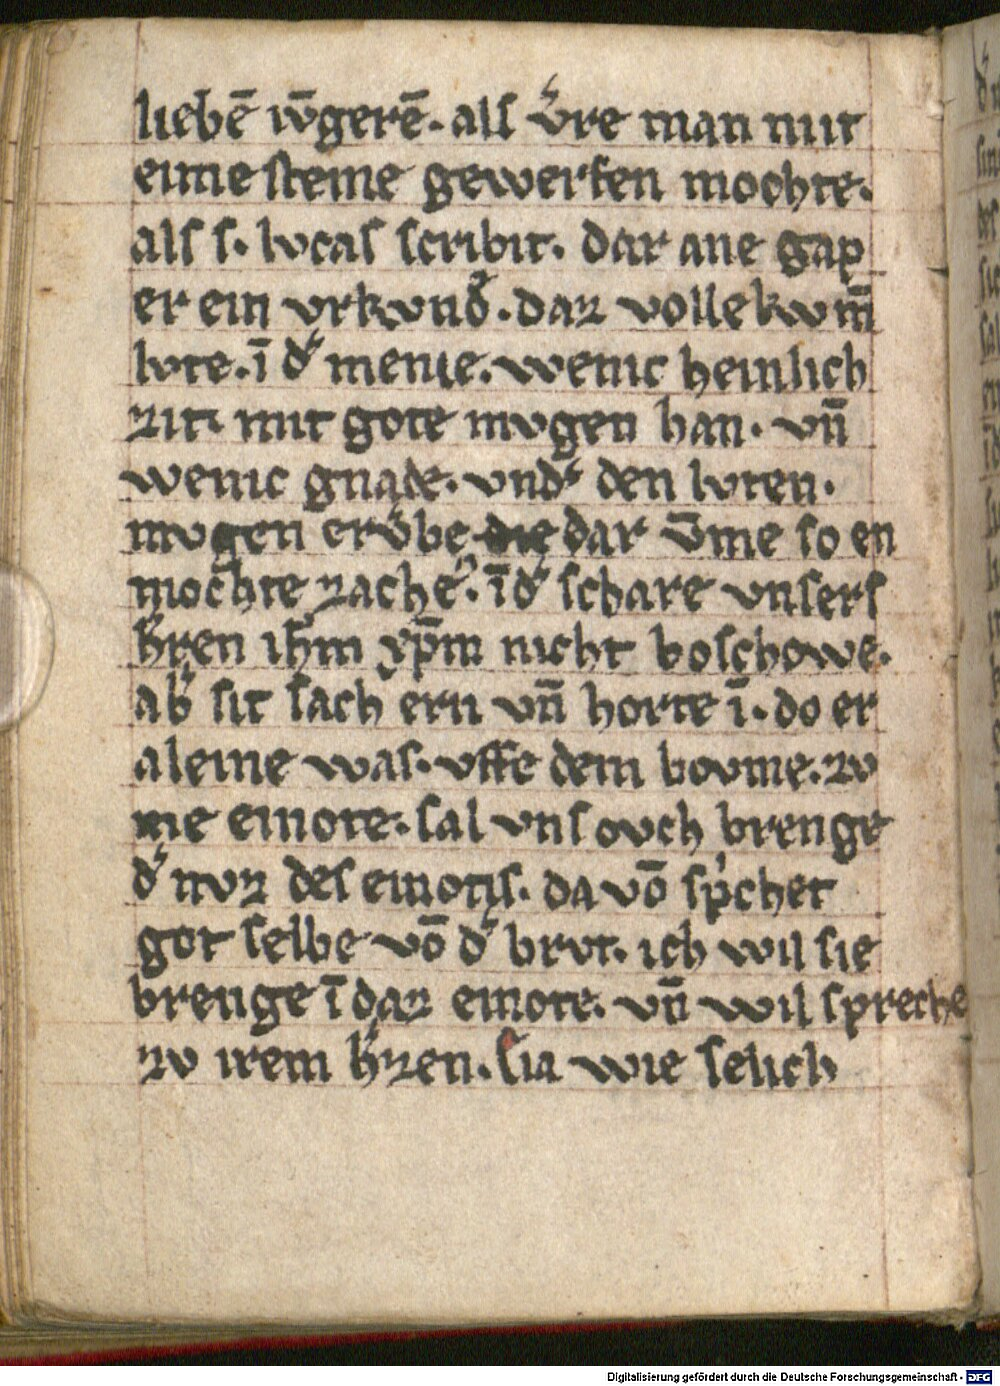 liebē iv̄gerē. als v̓re man mit
eime steine gewerfen mochte.
als s. lvcas scribit. dar ane gap
er ein vrkvnd̓. daz vollekvm̄
lvte. ī d̓ menie. wenic heinlich
zit mit gote mvgen han. vn̄
wenic gnade. vnd̓ den lvten.
mvgen erv̓be dar v̄me so en
mochte zacheꝰ. ī d̓ schare vnsers
h̓ren ih̄m xp̄m nicht boschowe.
ab̓ sit sach ern vn̄ horte ī. do er
aleine was. vffe dem bovme. zv
me einote. sal vns ovch brenge
d̓ nvz des einotis. da vō sp̓chet
got selbe vō d̓ brvt. ich wil sie
brenge ī daz einote. vn̄ wil spreche
zv irem h̓zen. Sia wie selich
Digitalisierung gefördert durch die Deutsche Forschungsgemeinschaft - DFG